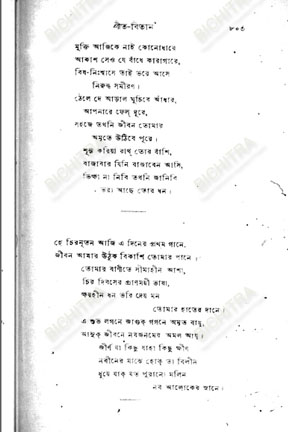 গীত-বিতান
৮০৩
মুক্তি আজিকে নাই কোনোধারে
আকাশ সেও যে বাঁধে কারাগারে,
বিষ-নিঃশ্বাসে তাই ভরে আসে
নিরুদ্ধ সমীরণ।
ঠেলে দে আড়াল ঘুচিবে আঁধার,
আপনারে ফেল্ দূরে,
সহজে তখনি জীবন তোমার
অমৃতে উঠিবে পূরে।
শূন্য করিয়া রাখ্ তোর বাঁশি,
বাজাবার যিনি বাজাবেন আসি,
ভিক্ষা না নিবি তখনি জানিবি
ভরা আছে তোর ধন।
হে চিরনূতন আজি এ দিনের প্রথম গানে,
জীবন আমার উঠুক বিকাশি তোমার পানে।
তোমার বাণীতে সীমাহীন আশা,
চির দিবসের প্রাণময়ী ভাষা,
ক্ষয়হীন ধন ভরি দেয় মন
তোমার হাতের দানে।
এ শুভ লগনে জাগুক গগনে অমৃত বায়ু,
আনুক জীবনে নবজনমের অমল আয়ু।
জীর্ণ যা কিছু যাহা কিছু ক্ষীণ
নবীনের মাঝে হোক্ তা বিলীন
ধুয়ে যাক্ যত পুরানো মলিন
নব আলোকের স্নানে।
BICHITRA